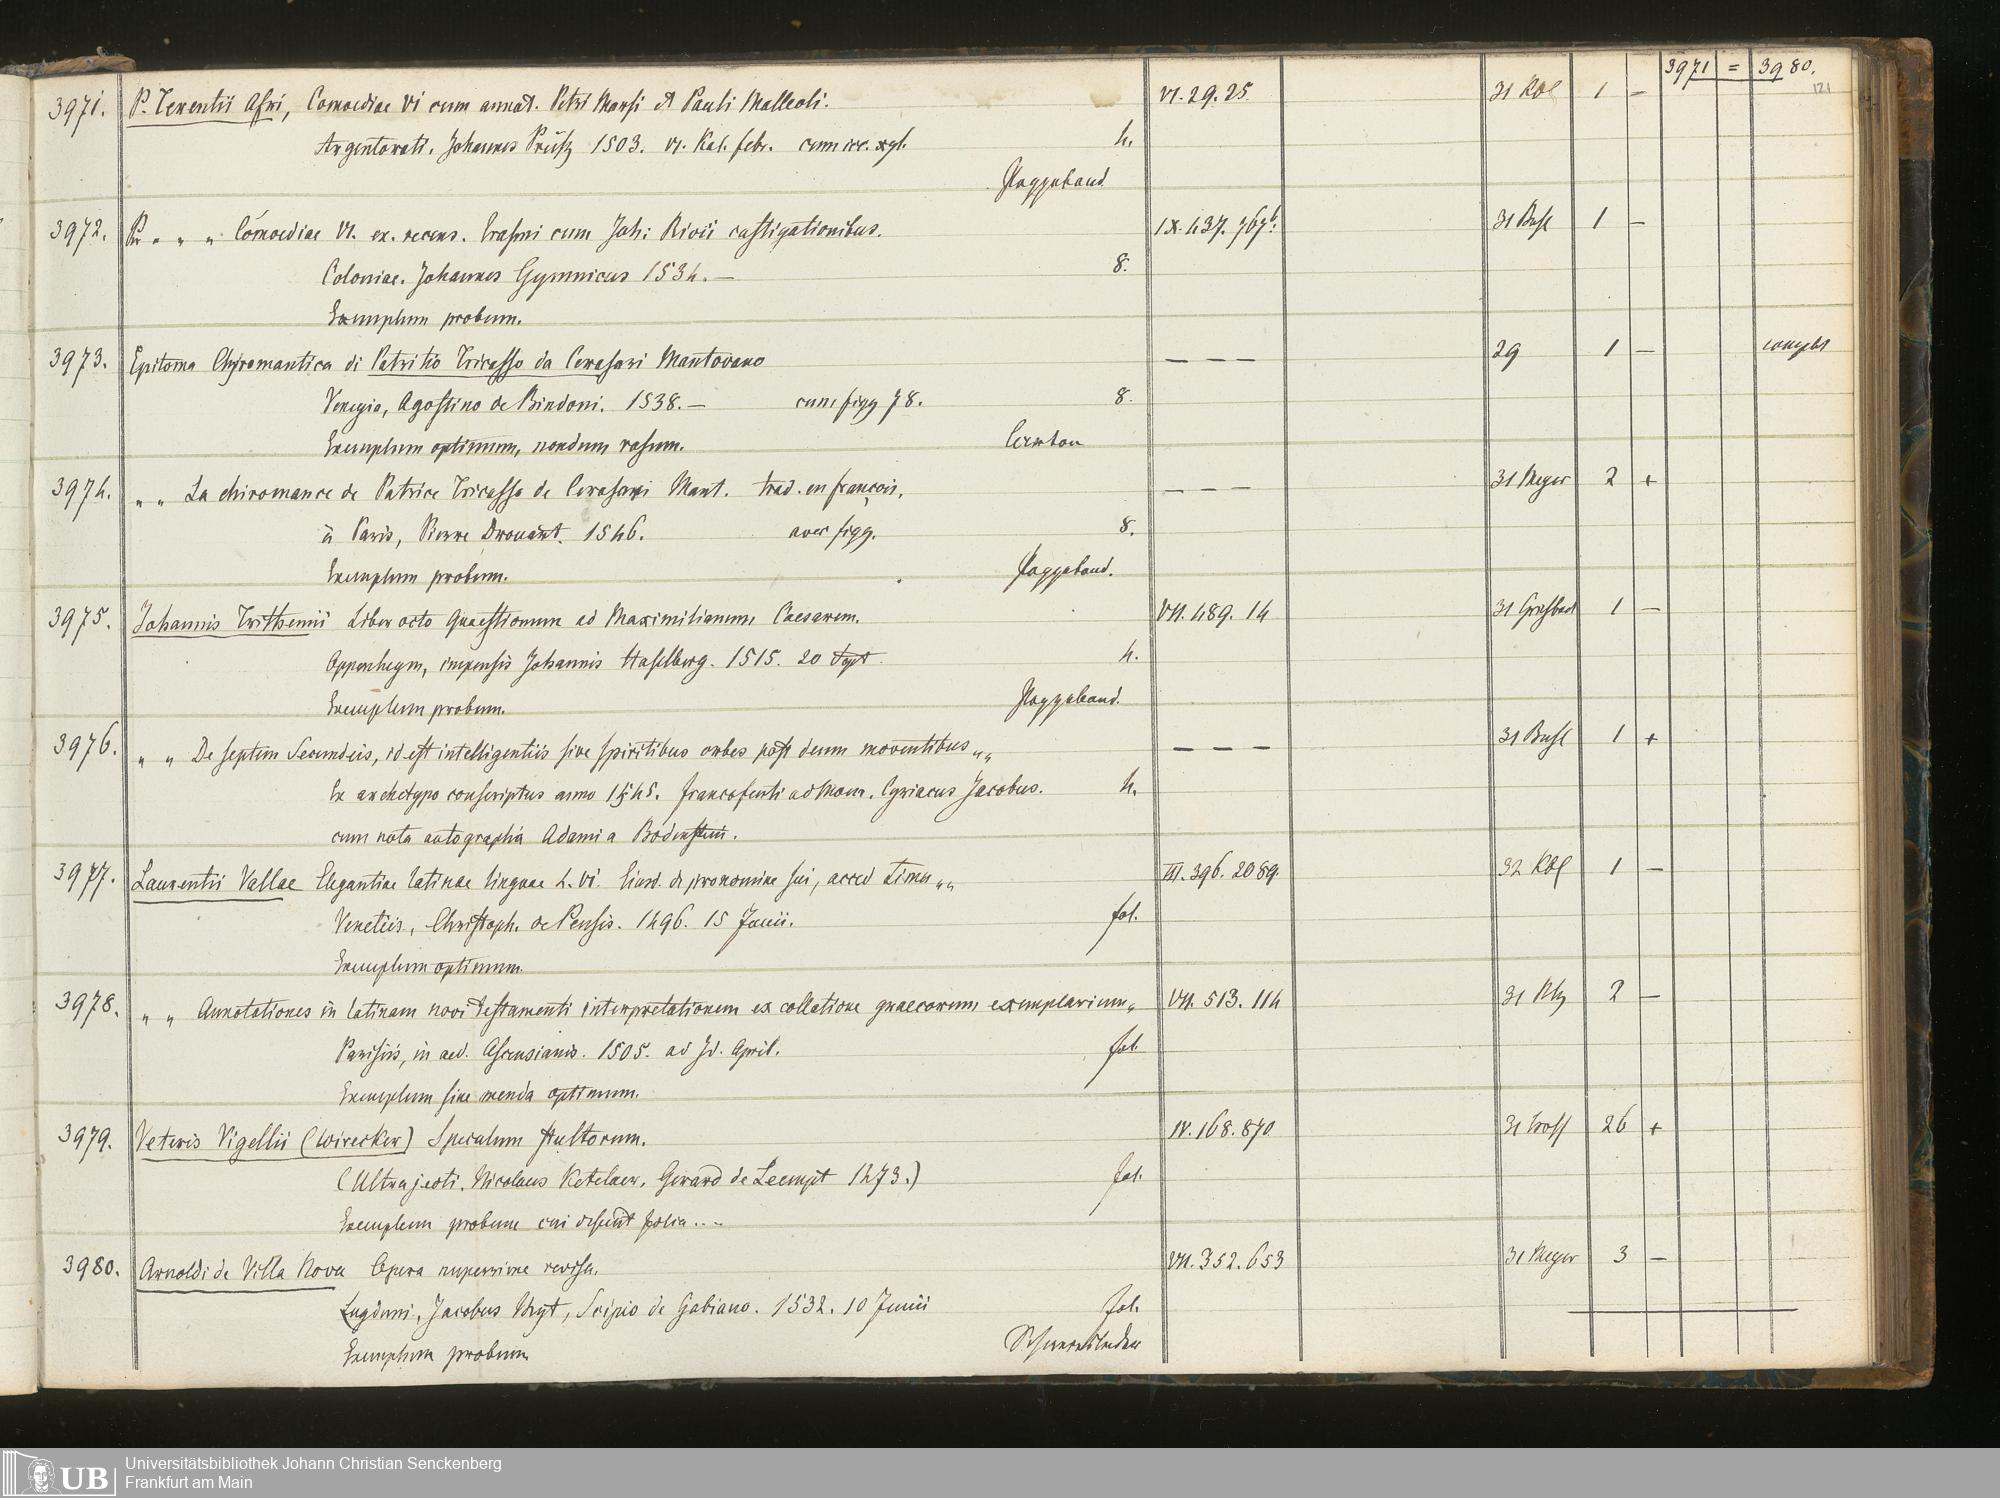 3971 = 3980.
121
3971. P. Terentii Afri, Comoediae VI cum annot. Petri Marsi et Pauli Malleoli. VI. 29. 25. 31 1 —
Argentorati. Johannes Prüss 1503. VI. Kal. febr. cum xyl. 4.
Pappband
3972. P. „ „ „ Comoediae VI. ex. recens. Erasmi cum Joh: Rivii castigationibus. IX. 437. 767b. 31 Basl 1 —
Coloniae. Johannes Gymnicus 1534. — 8.
Exemplum probum.
3973. Epitoma Chyromantica di Patritio Tricasso da Cerasari Mantovano — — — 29 1 — complet
Venegia, Agostino de Bindoni. 1538. — cum figg 78. 8.
Exemplum optimum, nondum rasum. Carton
3974. „ „ La chiromance de Patrice Tricasso de Cerasari Mant. trad. en françois. — — — 31 Meyer 2 +
à Paris, Pierre Drouart. 1546. avec figg. 8.
Exemplum probum. Pappband.
3975. Johannis Trithemii Liber octo Quaestionum ad Maximilianum Caesarem. VII. 489. 14 31 1 —
Oppenheym, impensis Johannis Haselberg. 1515. 20 Sept. 4.
Exemplum probum. Pappband.
3976. „ „ De septem Secundeis, id est intelligentiis sive spiritibus orbes post deum moventibus „„ — — — 31 Basl 1 +
Ex archetypo conscriptus anno 1545. francofurti ad Moen. Cyriacus Jacobus. 4.
cum nota autographa Adami a Bodenstein.
3977. Laurentii Vallae Elegantiae latinae linguae L. VI. Eiusd. de pronomine sui, acced Lima „„ III. 396. 2089. 32 1 —
Venetiis, Christoph. de Pensis. 1496. 15 Junii. fol.
Exemplum optimum.
3978. „ „ Annotationes in latinam novi Testamenti interpretationem ex collatione graecorum exemplarium„ VII. 513. 114 31 2 —
Parisiis, in aed. Ascensianis. 1505. ad Id. April. fol.
Exemplum sine menda optimum.
3979. Veteris Vigellii (Wirecker) Speculum stultorum. IV. 168. 870. 31 26 +
(Ultrajecti. Nicolaus Ketelaer, Gerard de Leempt 1473.) fol.
Exemplum probum cui desunt folia....
3980. Arnoldi de Villa Nova Opera nuperrime revisa. VII. 352. 653 31 Meyer 3 —
Lugduni, Jacobus Myt, Scipio de Gabiano. 1532. 10 Junii fol.
Exemplum probum Schweinsleder
UB
Universitätsbibliothek Johann Christian Senckenberg
Frankfurt am Main